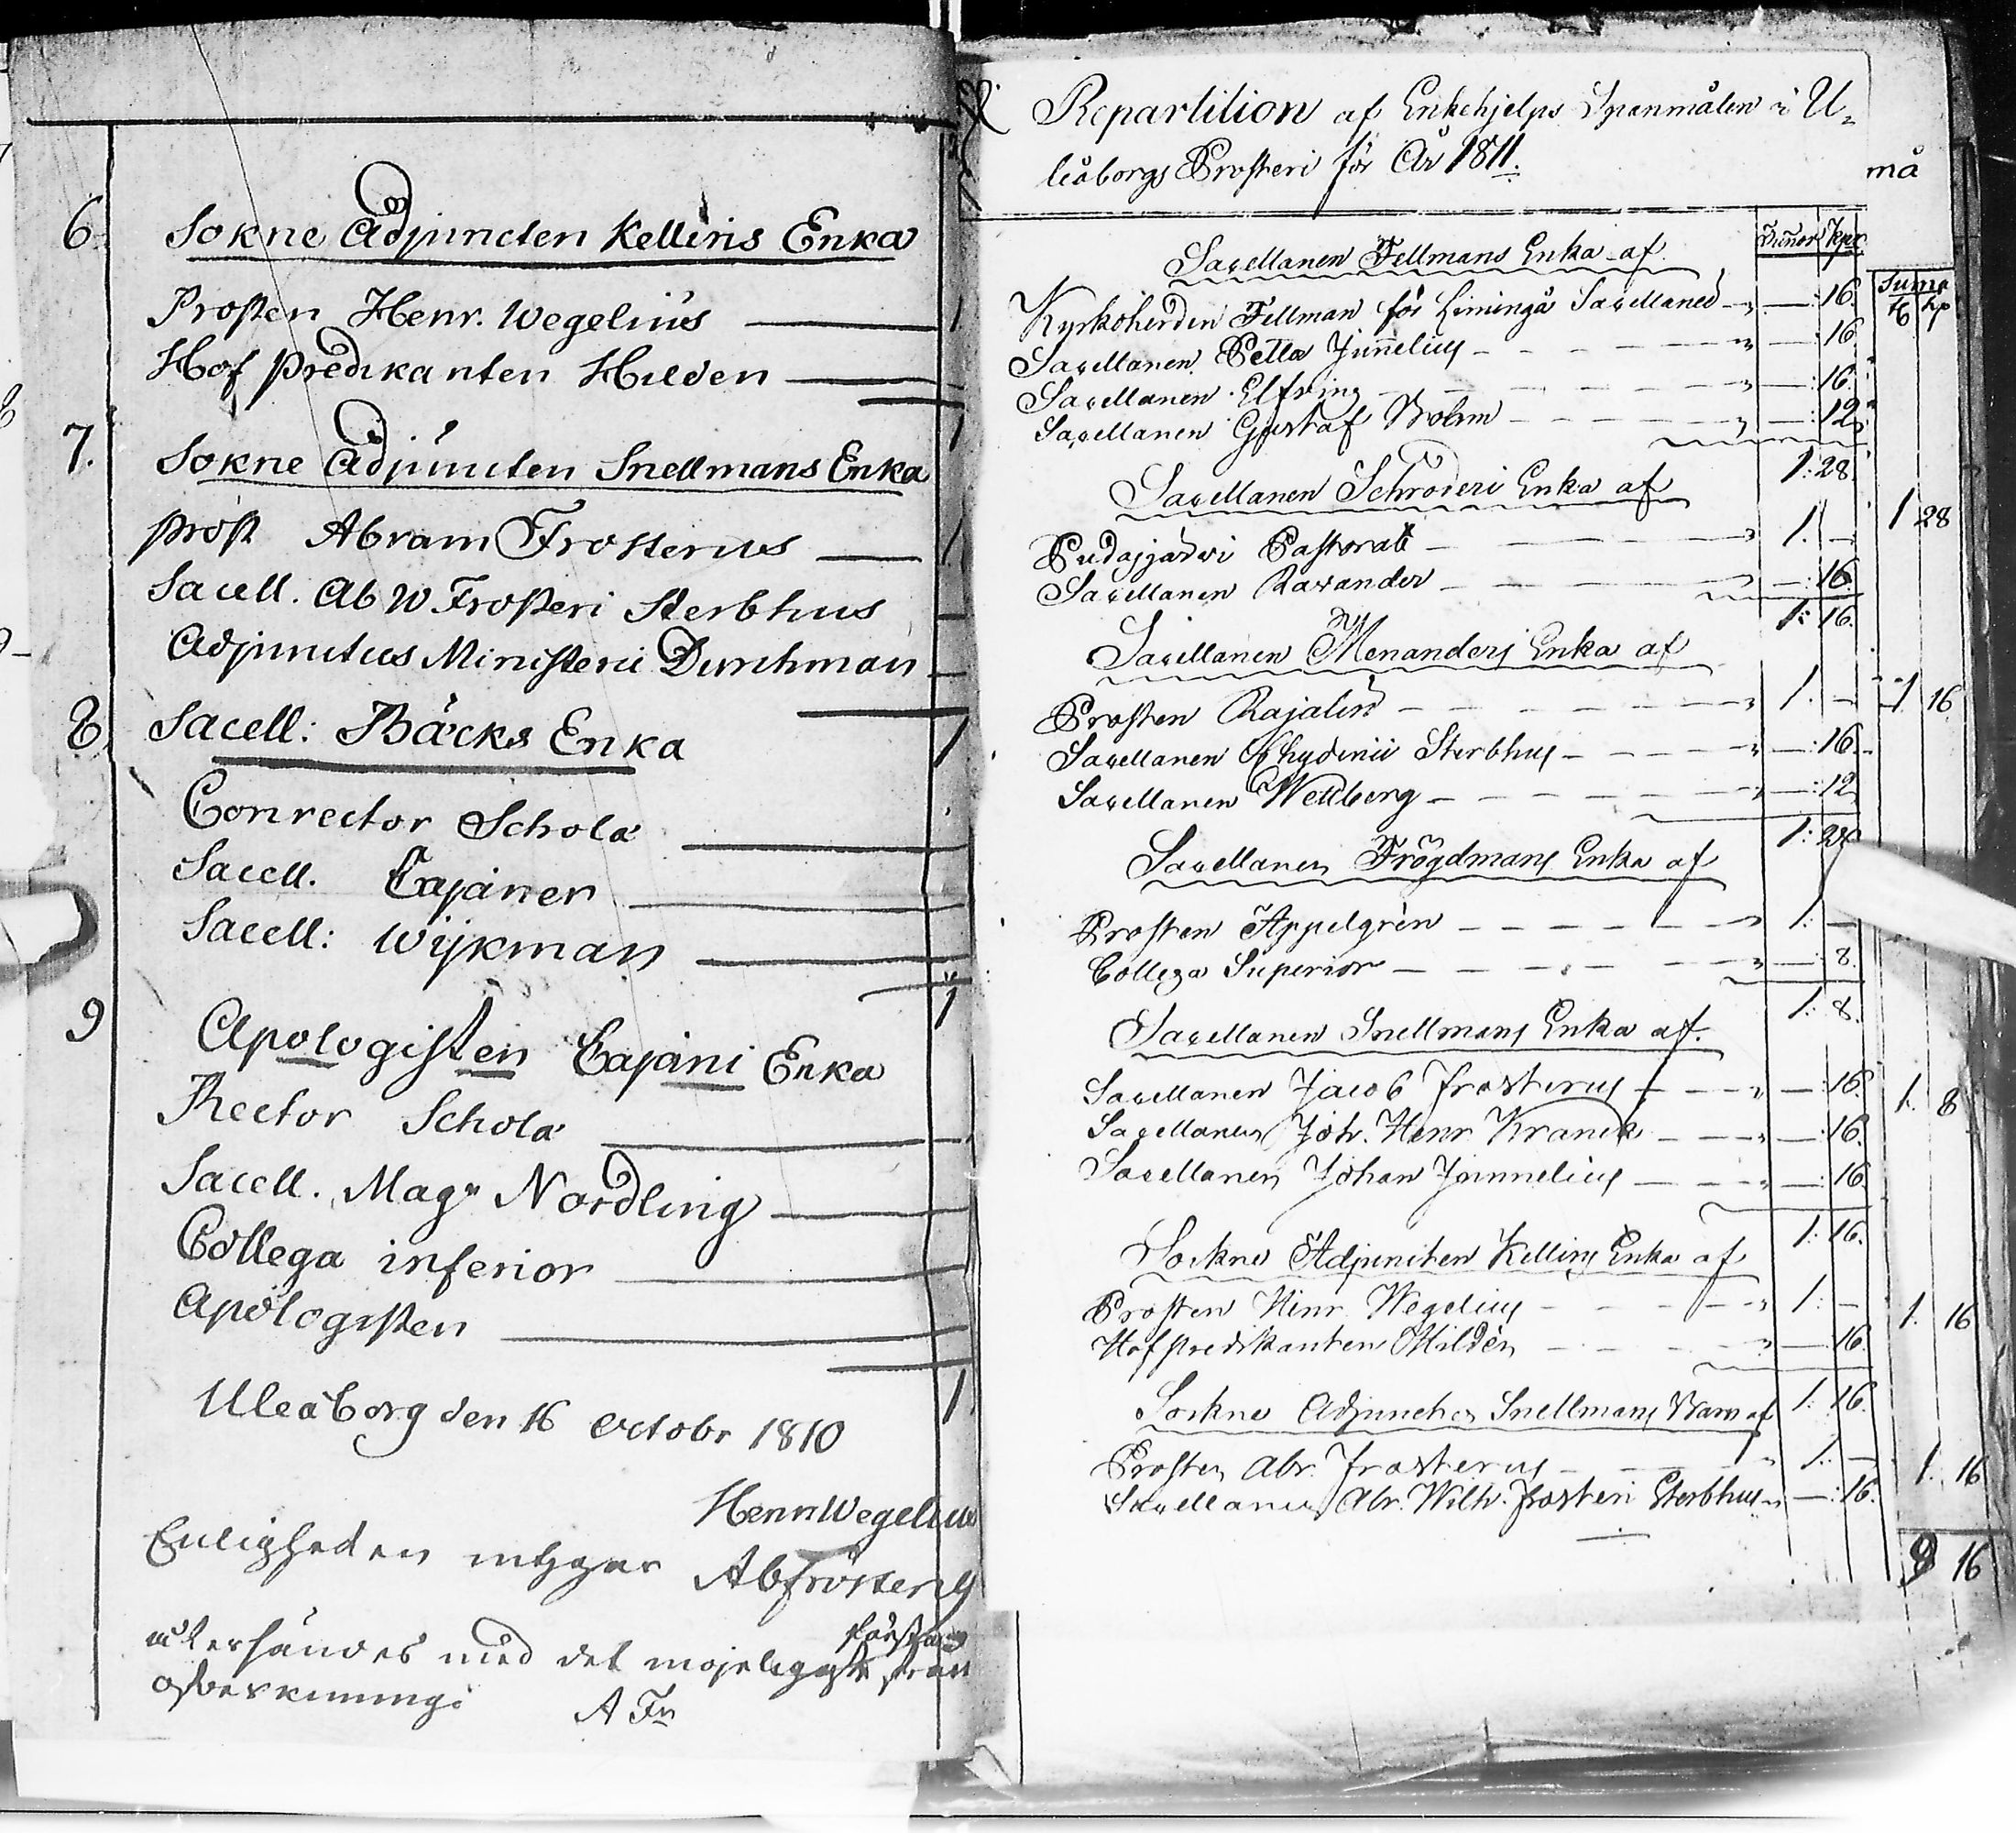 6. Sokne Adjuncten Kellins Enka
Prosten Henr. Wegelius — 1
Hof Predikanten Hilden —
1
7. Sokne Adjuncten Snellmans Enka
Prost Abram Frosterus — 1
Sacell. Ab W Frosteri Sterbhus —
Adjunctus Ministerii Durchman —
1
8. Sacell: Bäcks Enka
Conrector Scholæ —
Sacell. Cajaner —
Sacell: Wijkman —
1
9 Apologisten Cajani Enka
Rector Scholæ —
Sacell. Magn Nordling —
Collega inferior —
Apologisten —
1
Uleåborg den 16 Octobr 1810
Henr Wegelius
Enligheden intygar Ab Frosterus
återsändes med det möjeligaste
A Fs
Repartition af Enkehjelps Spanmålen i U-
leåborgs Prosteri för År 1811.
må
Tunnor Kpr
Suma
t kp
Sacellanen Fellmans Enka af
Kyrkoherden Fellman för Limingå Sacellaned — " — : 16.
Sacellanen Petter Junnelius — " — : 16
Sacellanen Elfving — " — : 16.
Sacellanen Gustaf Bohm — " — : 12
1: 28
Sacellanen Schroderi Enka af
1 28
Pudasjärvi Pastorat — " 1. —
Sacellanen Ravander — " — : 16
1: 16.
Sacellanen Menanders Enka af
Prosten Rajalin — " 1. —
1 16
Sacellanen Chydenii Sterbhus — " — : 16
Sacellanen Wettberg — " — : 12
1: 28
Sacellanen Frögdmans Enka af
Prosten Appelgren — " 1. —
Collega Superior — " — 8.
1: 8.
Sacellanen Snellmans Enka af.
Sacellanen Jacob Frosterus — " — : 16
1. 8
Sacellanen Joh. Henr Kranck — " — : 16.
Sacellanen Johan Junnelius — " — : 16
1: 16.
Sockne Adjuncten Kellins Enka af
Prosten Henr Wegelius — " 1: —
1. 16
Hofpredikanten Hildén — " — 16.
1: 16.
Sockne Adjuncten Snellmans Barn af
Prosten Abr. Frosterus — " 1: —
1. 16
Sacellanen Abr. Wilh. Frosteri Sterbhus " — : 16.
9 16